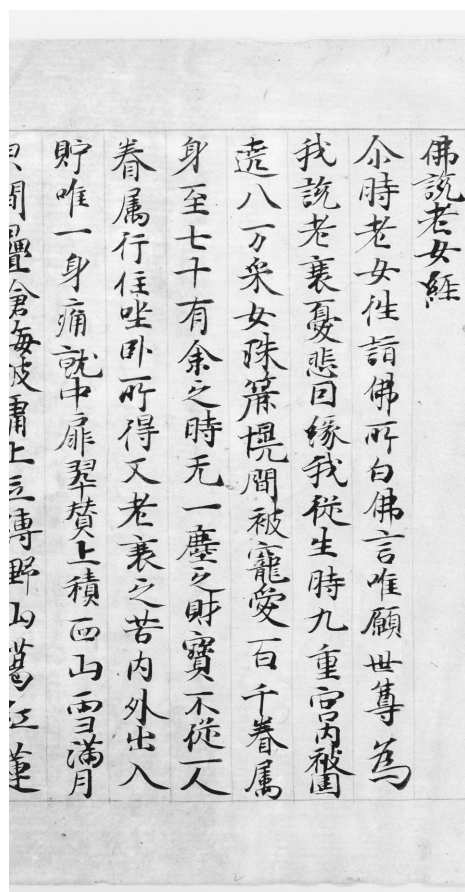 佛説老女經
尒時老女徃詣佛所白佛言唯願世尊為
我説老衰憂悲因緣我從生時九重宮内被圍
遶八万衆女珠簾間被寵愛百千眷属
身至七十有余之時无一塵之財寶不從一人
眷属行住坐卧所得又老衰之苦内外出入
貯唯一身痛就中扉翠賛上積四山雪滿月
間畳滄海波肩上立野山葛紅蓮